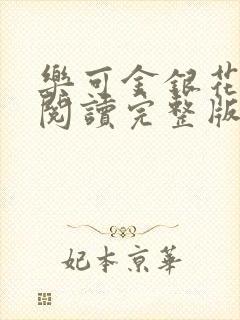 樂可金銀花
閱讀完整版
妃本京華